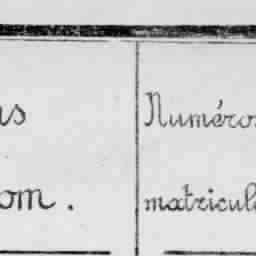 us
om.
Numéros
matricul